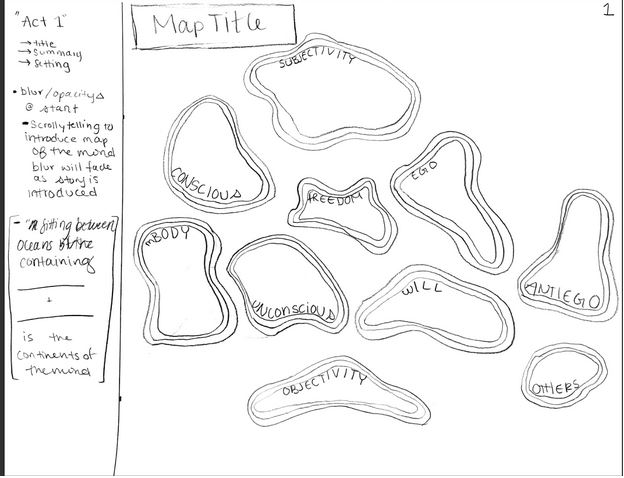 "Act 1"
→title
→summary
→setting
• blur/opacity Δ
@ start
- Scrollytelling to
introduce map
of the mind
blur will fade
as story is
introduced
- "sitting between
oceans of the
containing
+
is the
continents of
the mind
Map Title
1
SUBJECTIVITY
CONSCIOUS
FREEDOM
EGO
BODY
UNCONSCIOUS
WILL
ANTIEGO
OBJECTIVITY
OTHERS